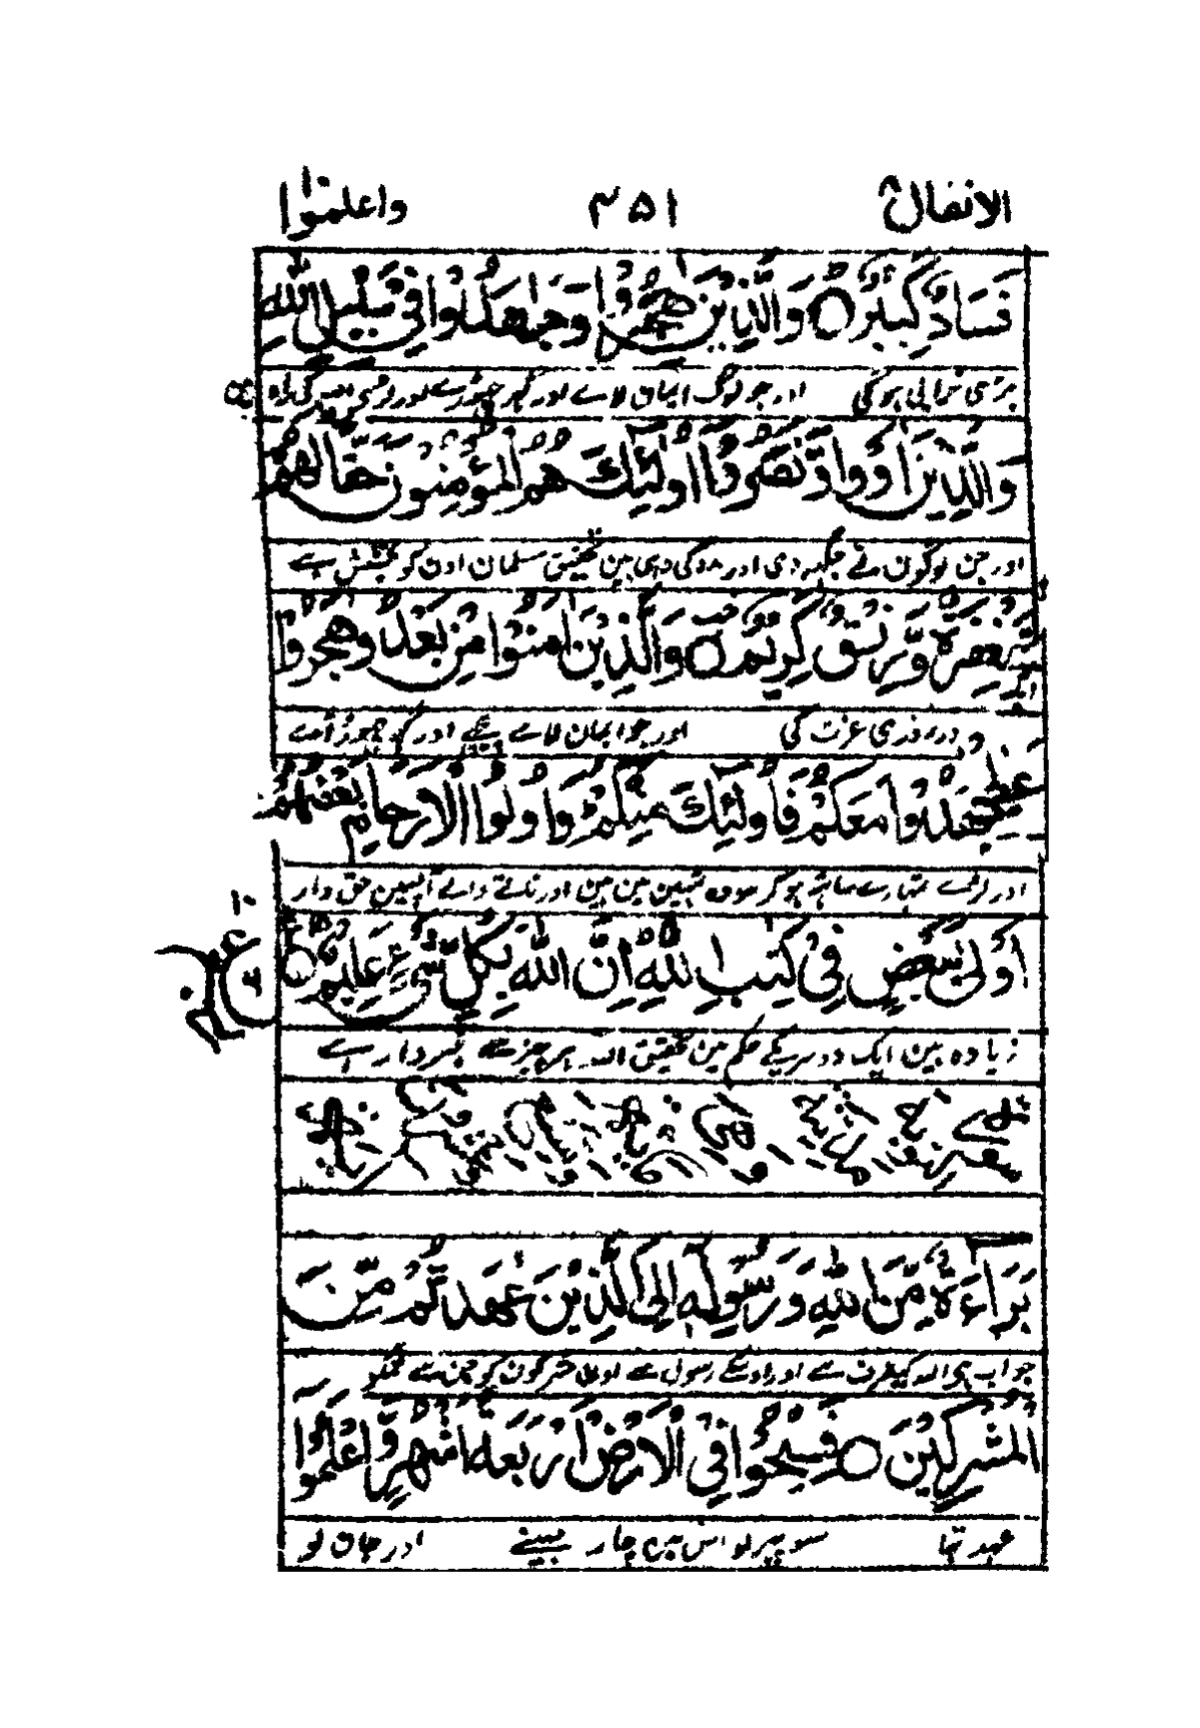 الانفال ٨ ٣٥١ واعلموا
فَسَادٌ كَبِيْرٌ ○ وَالَّذِيْنَ هَجَرُوْا وَجَاهَدُوْا فِيْ سَبِيْلِ اللّٰهِ
بڑی خرابی ہوگی اور جو لوگ ایمان لاے اور گھر چھوڑے اور لڑے اللہ کی راہ
وَالَّذِيْنَ اٰوَوْا وَّنَصَرُوْٓا اُولٰٓئِكَ هُمُ الْمُؤْمِنُوْنَ حَقًّا لَهُمْ
اور جن لوگون نے جگہہ دی اور مدد کی وہی ہین تحقیق مسلمان اون کو بخشش ہے
مَّغْفِرَةٌ وَّرِزْقٌ كَرِيْمٌ ○ وَالَّذِيْنَ اٰمَنُوْا مِنْ بَعْدُ وَهَجَرُوْا
اور روزی عزت کی اور جو ایمان لاے پیچھے اور گھر چھوڑ آے
وَجَهَدُوْا مَعَكُمْ فَاُولٰٓئِكَ مِنْكُمْ وَاُولُوا الْاَرْحَامِ بَعْضُهُمْ
اور لڑے تمہارے ساتھ ہوکر سو وہ تمہین مین ہین اور ناتے والے آپسمین حق دار
اَوْلٰى بِبَعْضٍ فِيْ كِتٰبِ اللّٰهِ اِنَّ اللّٰهَ بِكُلِّ شَيْءٍ عَلِيْمٌ ○
زیادہ ہین ایک دوسریکے حکم مین تحقیق اللہ ہر چیز سے خبردار ہے
بَرَآءَةٌ مِّنَ اللّٰهِ وَرَسُوْلِهٖٓ اِلَى الَّذِيْنَ عٰهَدْتُمْ مِّنَ
جواب ہی اللہ کیطرف سے اور اوسکے رسول سے اون مشرکون کو جن سے تمکو
الْمُشْرِكِيْنَ ○ فَسِيْحُوْا فِي الْاَرْضِ اَرْبَعَةَ اَشْهُرٍ وَّاعْلَمُوْٓا
عہد تہا سو پہر لو اس مین چار مہینے اور جان لو